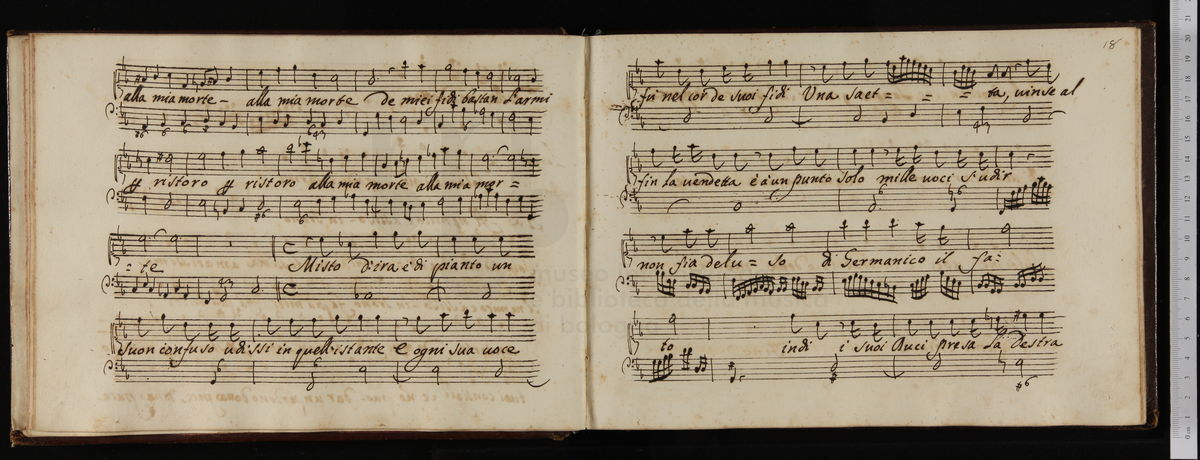 alla mia morte - alla mia morte De miei fidi bastan l'armi
ristoro ristoro alla mia morte alla mia mor =
= te Misto d'ira e di pianto un
suon confuso udissi in quell'istante e ogni sua uoce
18
fù nel cor de suoi fidi Una saet = = = ta, uinse al
fin la uendetta è à un punto solo mille uoci s'udir
non sia delu = so di Germanico il fa =
to indi i suoi Duci presa la destra
museo
biblioteca della musica
di bologna